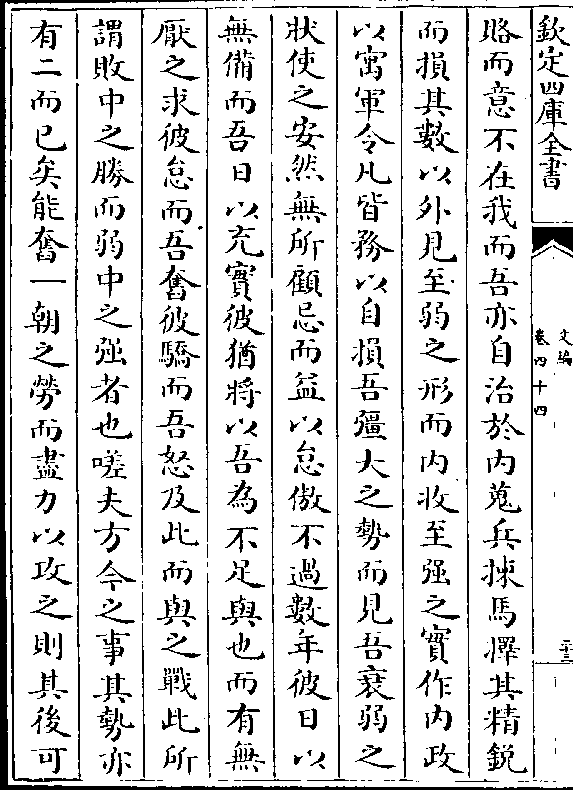 欽定四庫全書
文編
卷四十四
二十三
賂而意不在我而吾亦自治於内蒐兵揀馬擇其精鋭
而損其數以外見至弱之形而内收至强之實作内政
以寓軍令凡皆務以自損吾彊大之勢而見吾衰弱之
狀使之安然無所顧忌而益以怠傲不過數年彼日以
無備而吾日以充實彼猶將以吾為不足與也而有無
厭之求彼怠而吾奮彼驕而吾怒及此而與之戰此所
謂敗中之勝而弱中之强者也嗟夫方今之事其勢亦
有二而已矣能奮一朝之勞而盡力以攻之則其後可